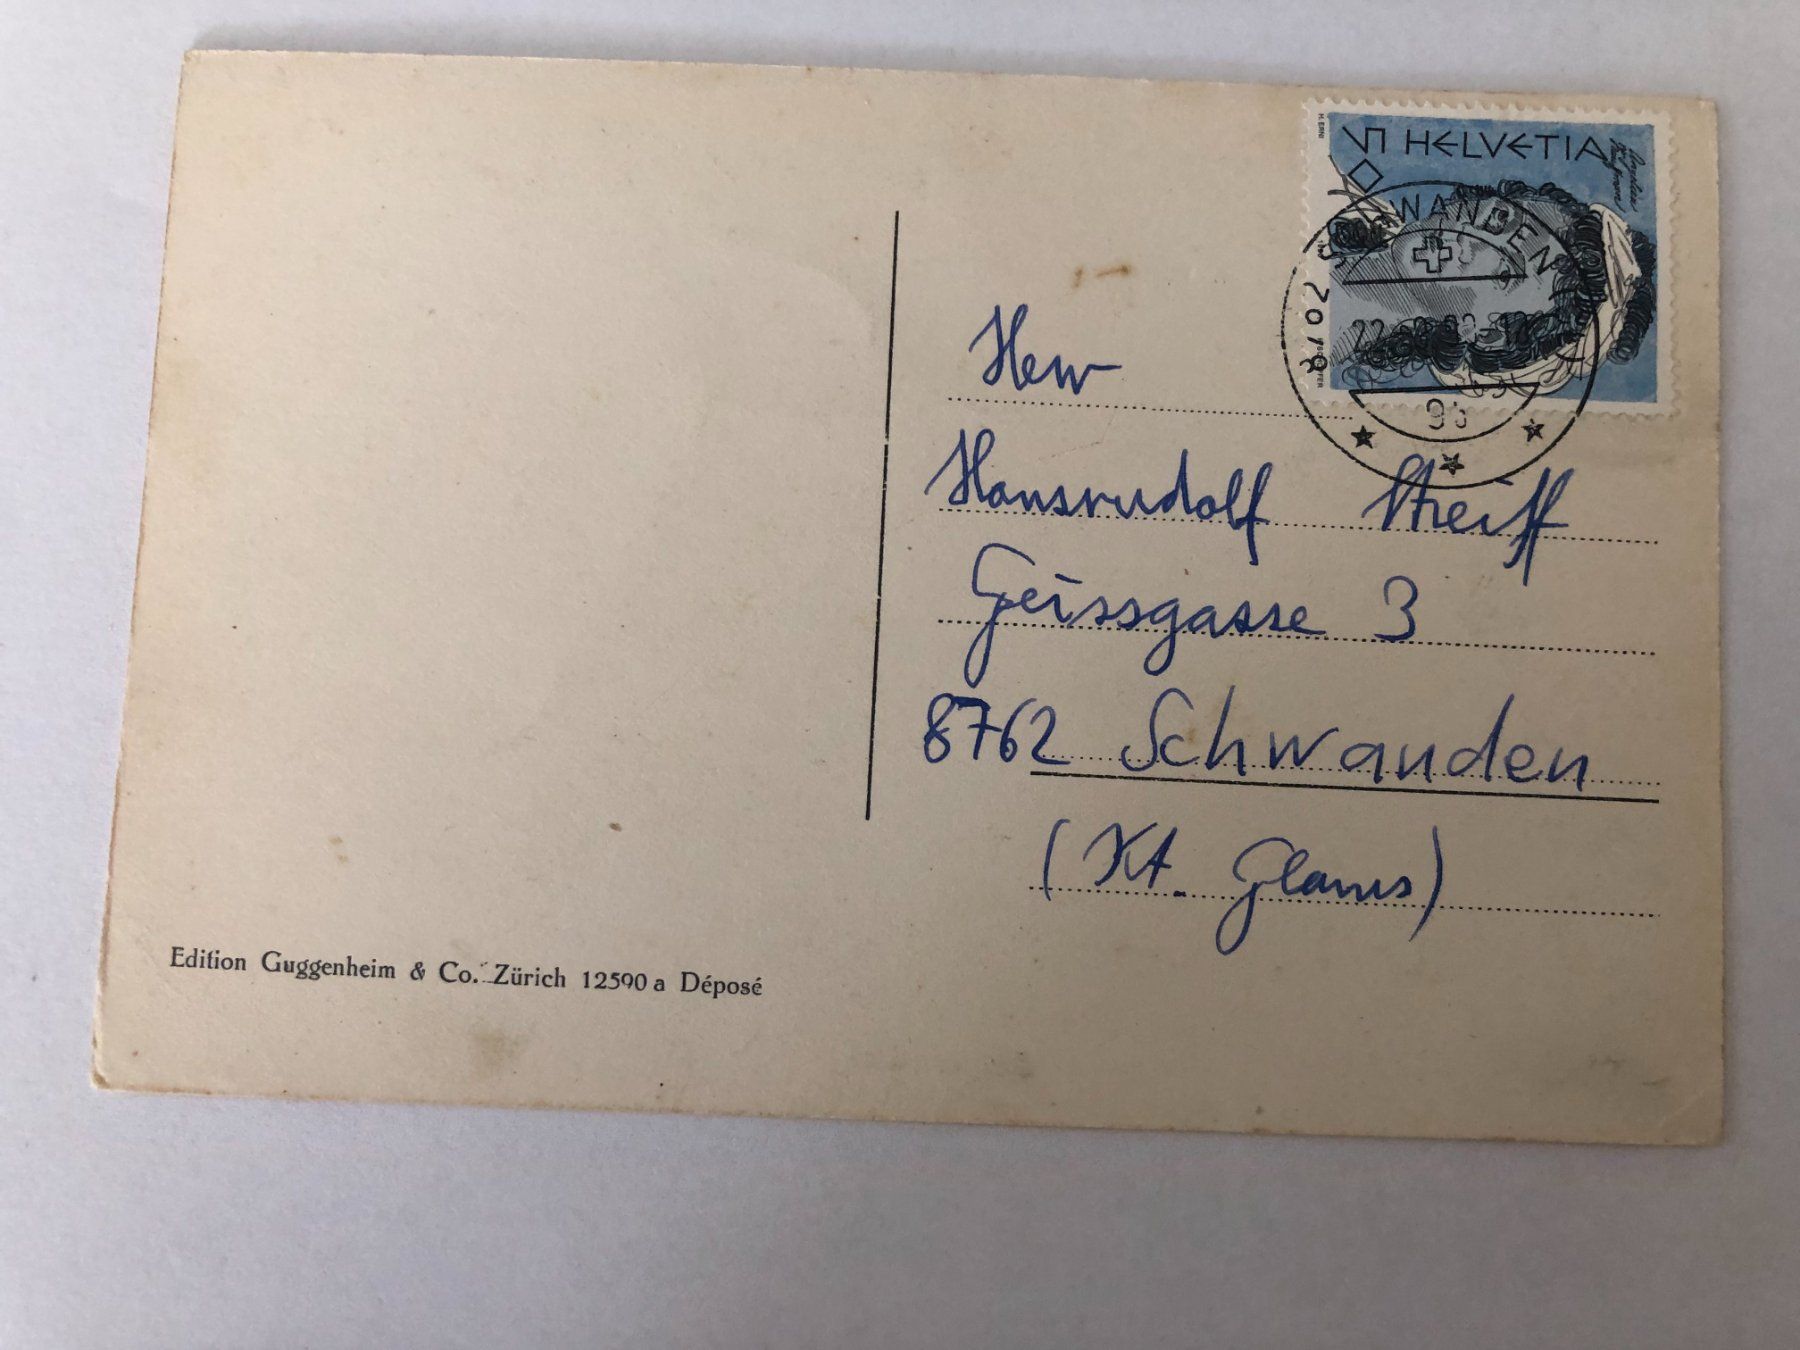 H. ERNI
50 HELVETIA
8762 SCHWANDEN
Herr
Hansrudolf Streiff
Geissgasse 3
8762 Schwanden
(Kt. Glarus)
Edition Guggenheim & Co. Zürich 12590 a Déposé